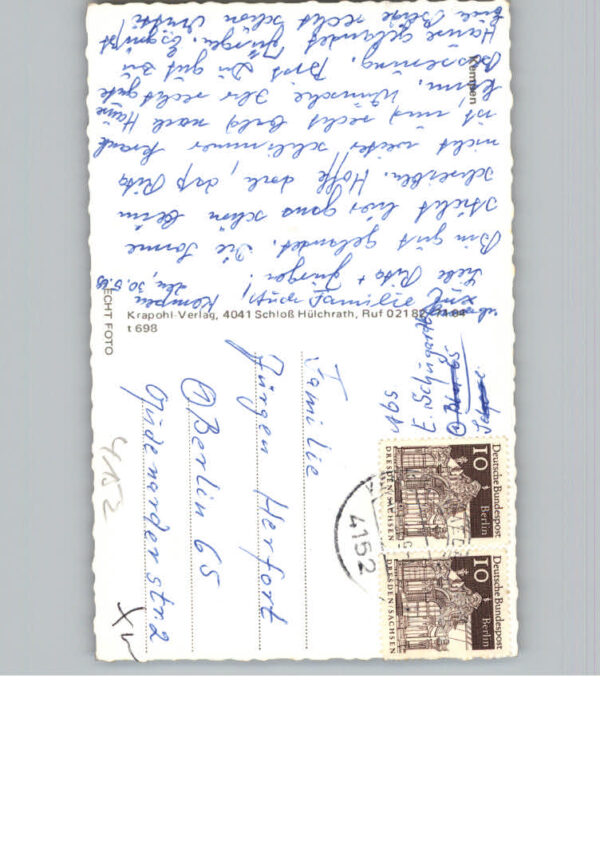 Kempen
Kempen, den, 30.5.68
Liebe Rita + Jürgen!
Bin gut gelandet. Die Sonne
sticht hier ganz schön beim
schreiben. Hoffe doch, daß Rita
nicht weiter schlimmer krank
ist und recht bald nach Hause
kann. Wünsche Ihr recht gute
Besserung. Bist Du gut zu
Hause gelandet Jürgen. Es grüßt
Euch recht schön
Familie
Krapohl-Verlag, 4041 Schloß Hülchrath, Ruf 02182
t 698
ECHT FOTO
Abs
E. Schu
Familie
Jürgen Herfort
1 Berlin 65
Oudenarder str. 2
4152
Deutsche Bundespost
Berlin
10
DRESDEN/SACHSEN
Deutsche Bundespost
Berlin
10
DRESDEN/SACHSEN
4152